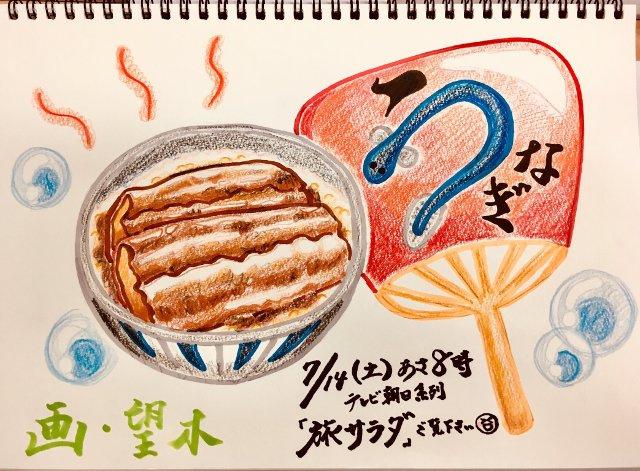 うなぎ
7/14(土)あさ8時
テレビ朝日系列
「旅サラダ」ご覧下さい
画・望木